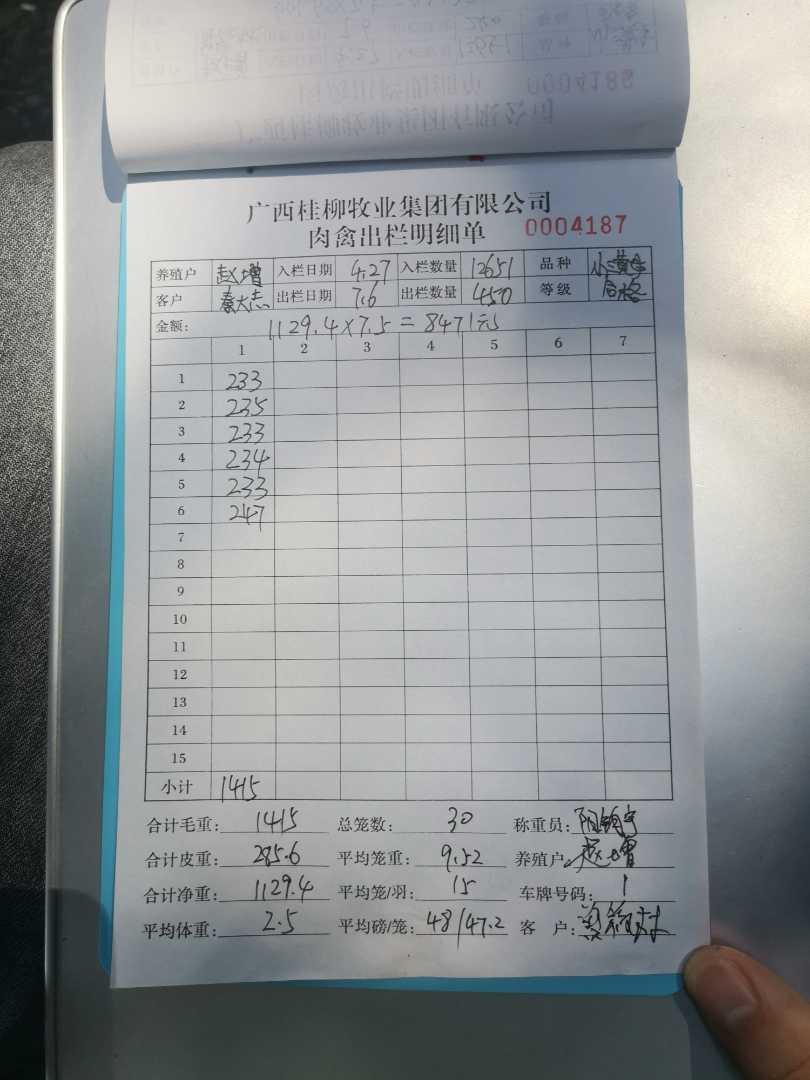 广西桂柳牧业集团有限公司
肉禽出栏明细单 0004187
养殖户 赵增 入栏日期 4.27 入栏数量 12651 品种 小黄
客户 秦大志 出栏日期 7.6 出栏数量 450 等级 合格
金额: 1129.4×7.5=8471元
1 2 3 4 5 6 7
1 233
2 235
3 233
4 234
5 233
6 247
7
8
9
10
11
12
13
14
15
小计 1415
合计毛重: 1415 总笼数: 30 称重员:
合计皮重: 285.6 平均笼重: 9.52 养殖户: 赵增
合计净重: 1129.4 平均笼/羽: 15 车牌号码: 1
平均体重: 2.5 平均磅/笼: 48/47.2 客 户:
0004188